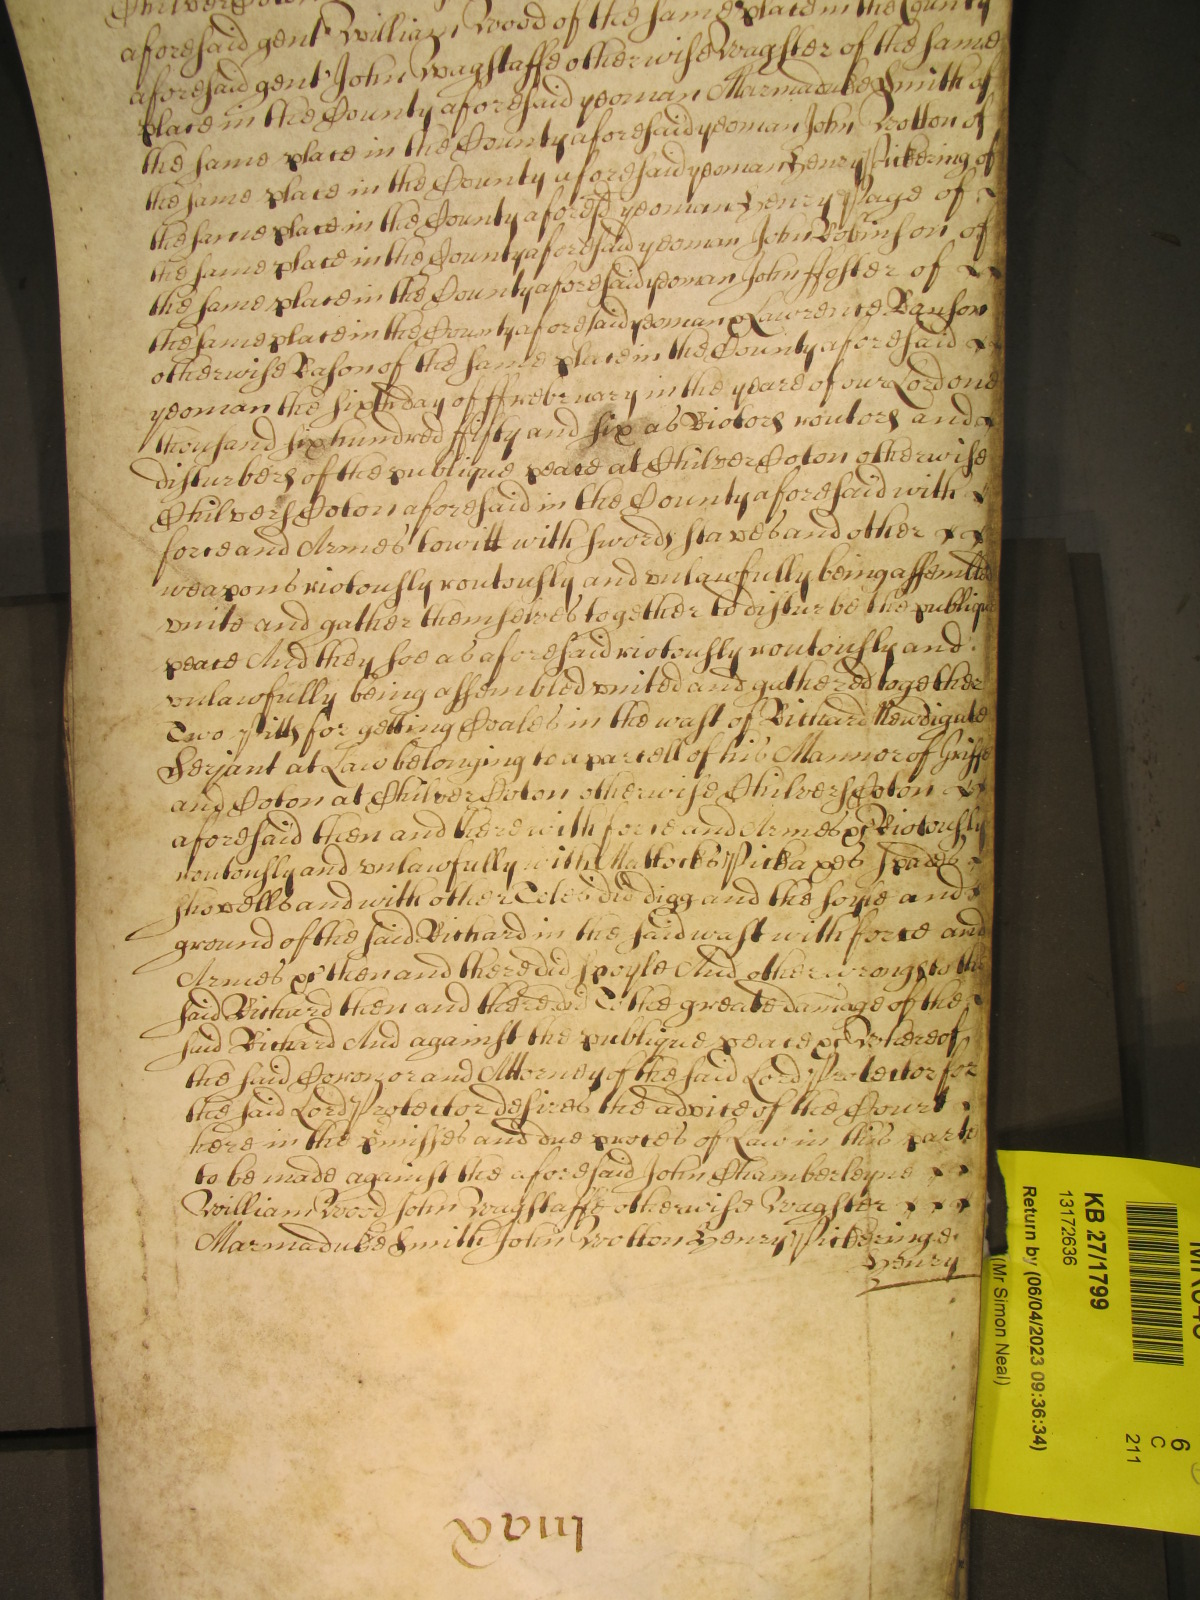 Chilvers Coton
aforesaid gent William Wood of the same place in the County
aforesaid gent John Wagstaffe otherwise Wagster of the same
place in the County aforesaid yeoman Marmaduke Smith of
the same place in the County aforesaid yeoman John Wotton of
the same place in the County aforesaid yeoman Henry Pickering of
the same place in the County aforesd yeoman Henry Page of
the same place in the County aforesaid yeoman John Robinson of
the same place in the County aforesaid yeoman John ffoster of
the same place in the County aforesaid yeoman & Lawrence Banson
otherwise Bason of the same place in the County aforesaid
yeoman the sixth day of ffrebruary in the yeare of our Lord one
thousand six hundred fifty and six as Riotors routors and
disturbers of the publique peace at Chilver Coton otherwise
Chilvers Coton aforesaid in the County aforesaid with
force and Armes to witt with swords staves and other
weapons riotously routously and unlawfully being assembled
unite and gather themselves together to disturbe the publique
peace And they soe as aforesaid riotously routously and
unlawfully being assembled united and gathered together
Two Pitts for getting Coales in the wast of Richard Newdigate
Serjant at Law belonging to a parcell of his Mannor of Griffe
and Coton at Chilver Coton otherwise Chilvers Coton
aforesaid then and there with force and Armes &c Riotously
routously and unlawfully with Mattocks Pickaxes Spades
shovells and with other Tooles did digg and the soyle and
ground of the said Richard in the said wast with force and
Armes &c then and there did spoyle And other wrongs to the
said Richard then and there did To the greate damage of the
said Richard And against the publique peace &c Whereof
the said Coronor and Attorney of the said Lord Protector for
the said Lord Protector desires the advice of the Court
here in the pmisses and due proces of Law in this parte
to be made against the aforesaid John Chamberleyne
William Wood John Wagstaffe otherwise Wagster
Marmaduke Smith John Wotton Henry Pickeringe
Henry
KB 27/1799
13172636
Return by (06/04/2023 09:36:34)
(Mr Simon Neal)
6
C
211